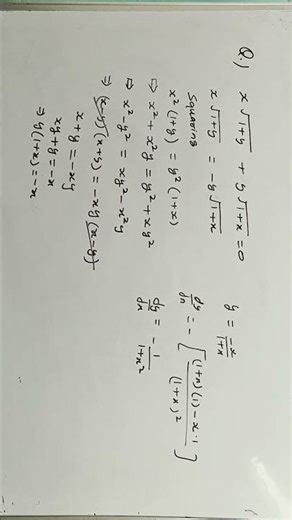 Q.1 x√1+y + y√1+x = 0
x√1+y = -y√1+x
Squaring
x²(1+y) = y²(1+x)
⇒ x² + x²y = y² + xy²
⇒ x² - y² = xy² - x²y
⇒ (x-y)(x+y) = -xy(x-y)
x+y = -xy
xy+y = -x
⇒ y(1+x) = -x
y = -x/1+x
dy/dx = -[(1+x)(1) - x·1/(1+x)²]
dy/dx = -1/1+x²